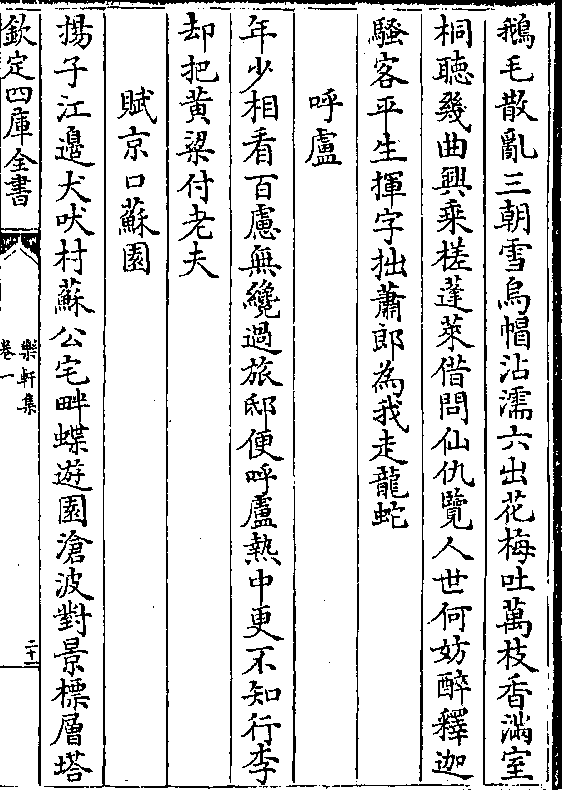 鵝毛散亂三朝雪烏帽沾濡六出花梅吐萬枝香滿室
桐聽幾曲興乘槎蓬萊借問仙仇覽人世何妨醉釋迦
騷客平生揮字拙蕭郎為我走龍蛇
呼盧
年少相看百慮無纔過旅邸便呼盧熱中更不知行李
却把黃粱付老夫
賦京口蘇園
揚子江邊犬吠村蘇公宅畔蝶遊園滄波對景標層塔
欽定四庫全書
樂軒集
卷一
二十一